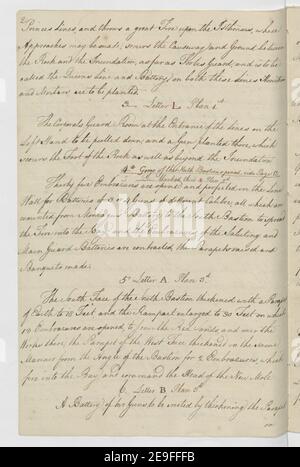 2
Princes Lines and throws a great Fire upon the Isthmus, where
Approaches may be made, scours the Causeway, and Ground between
the Rock and the Inundation, as far as Forbes's Guard, and is to be
called the Queens Line and Battery, on both these Lines
and Mortars are to be planted.
3. Letter L. Plan 1st
The Corporals Guard Room at the Entrance of the Lines on the
Left Hand to be pulled down, and a Gun planted there, which
scours the Foot of the Rock as well as beyond the Inundation
4th
Thirty four Embrazures are opened and perfected in the Line
Wall for Batteries of Guns of Calibre, all which are
continued from Montagus Battery to the North Bastion to
the Fire into the the Embrazures of the Saluting and
Main Guard Batteries are contracted, their Parapets raised and
Banquets made.
5th Letter A. Plan 3d.
The South Face of the North Bastion thickened with a Parapet
of Earth to 18 Feet and the Rampart enlarged to 30 Feet on which
Embrazures are opened to the Red Sands, and over the
Works there, the Parapet of the West Face thickened in the same
Manner from the Angle of the Bastion for 2 Embrazures, which
fire into the Bay and command the Head of the New Mole
6. Letter B Plan 3d
A Battery of Guns to be erected by thickening the Parapet
alamy
Image ID: 2E9FFFB
www.alamy.com